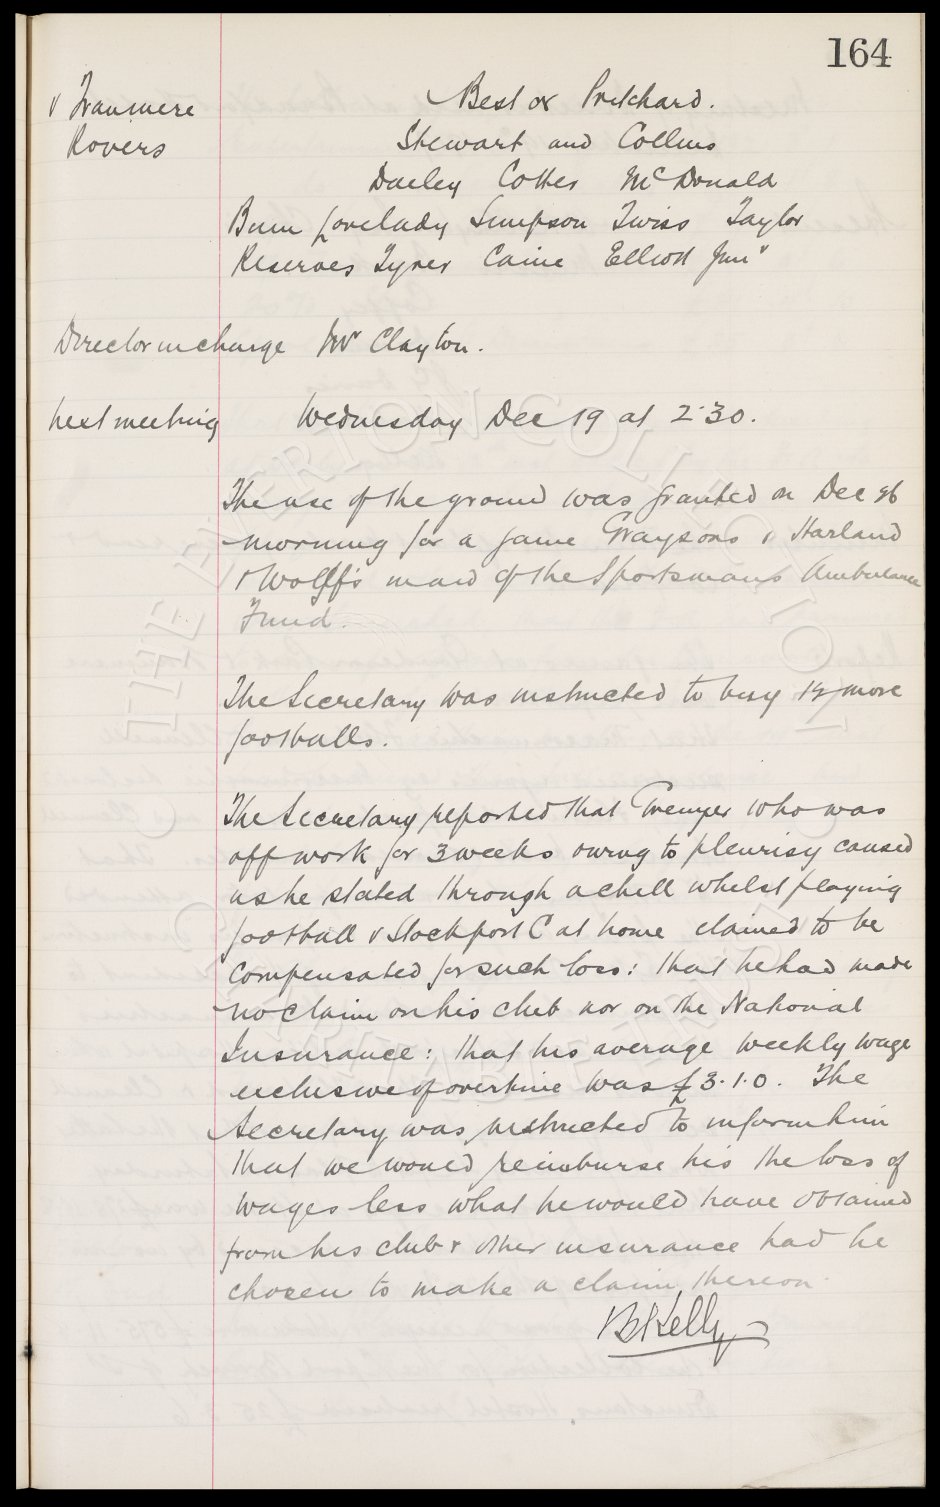 164
v Tranmere Best or Pritchard.
Rovers Stewart and Collins
Danley Cotter McDonald
Bunn Lovelady Simpson Twiss Taylor
Reserves Tyrer Caine Elliott Junr
Director in charge Mr Clayton.
Next meeting Wednesday Dec 19 at 2.30.
The use of the ground was granted on Dec 26
morning for a game Graysons v Harland
& Wolff's in aid of the Sportsmans Ambulance
Fund.
The Secretary was instructed to buy 12 more
footballs.
The Secretary reported that Grenyer who was
off work for 3 weeks owing to pleurisy caused
as he stated through a chill whilst playing
football v Stockport C at home claimed to be
compensated for such loss: that he had made
no claim on his club nor on the National
Insurance: that his average weekly wage
exclusive of overtime was £3.1.0. The
Secretary was instructed to inform him
that we would reimburse his the loss of
wages less what he would have obtained
from his club & other insurance had he
chosen to make a claim thereon.
B Kelly
THE EVERTON COLLECTION
CHARITABLE TRUST